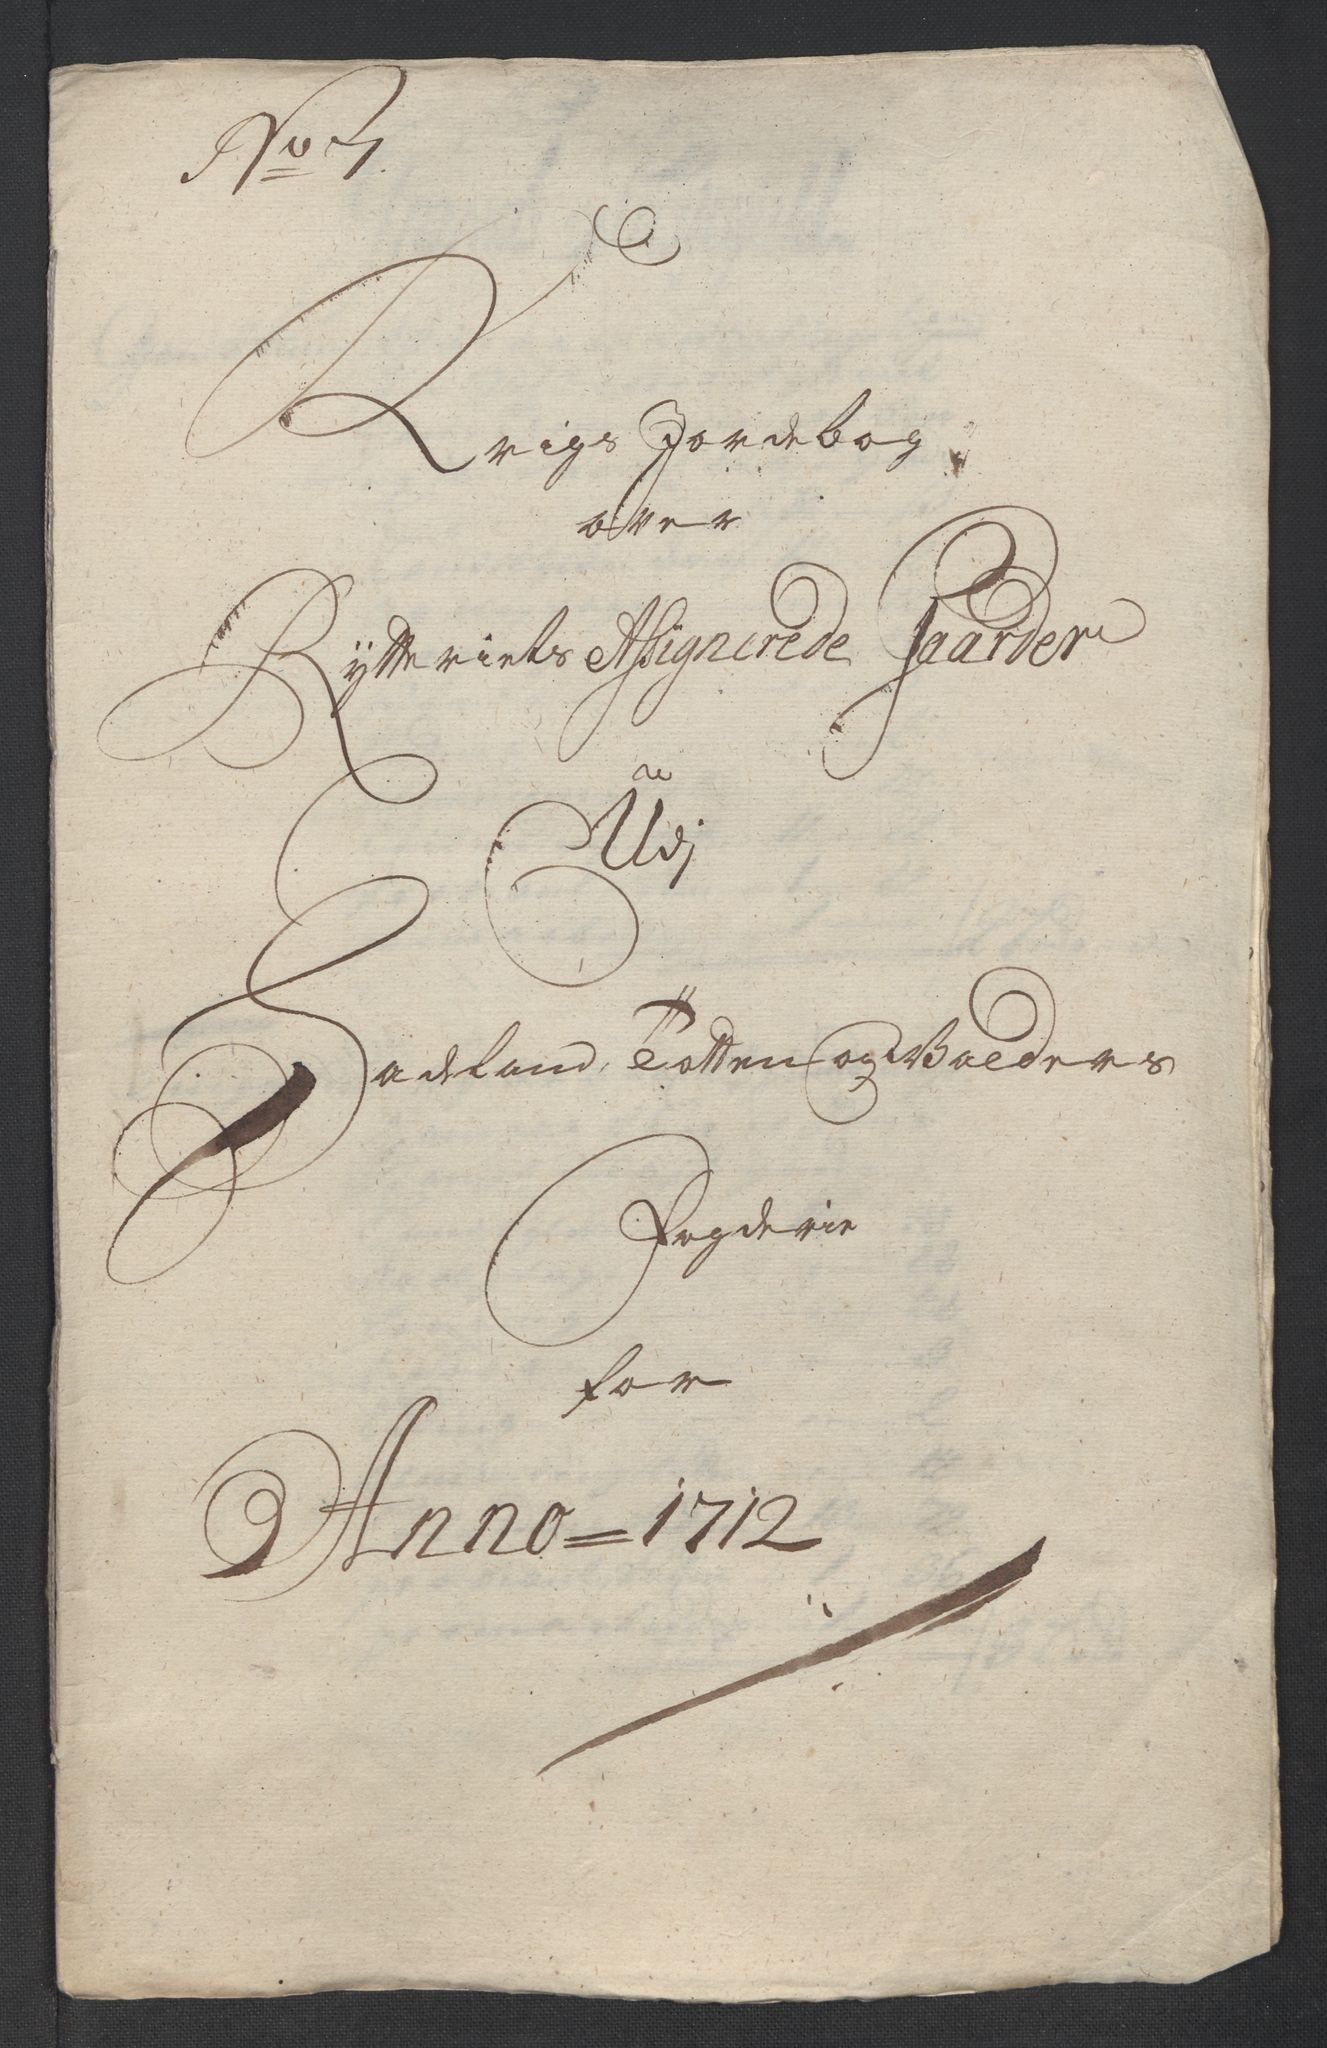 No 7.
Krigs Jordebog
over
Rytteriets Assignerede Gaarder
Udj
Hadeland, Totten og Valders
Fogderie
for
Anno = 1712